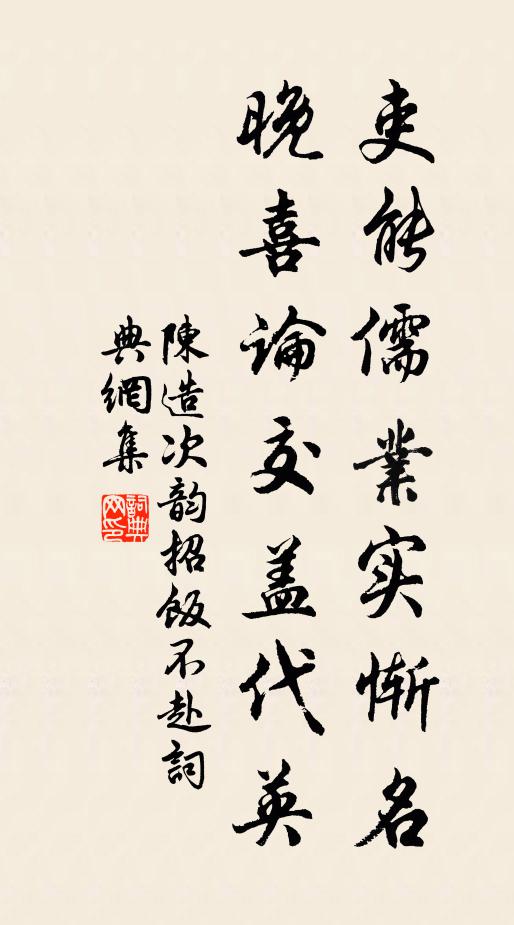 吏能儒業实惭名
晚喜論交盖代英
陳造次韵招飯不赴詞
典網集
詞典网印